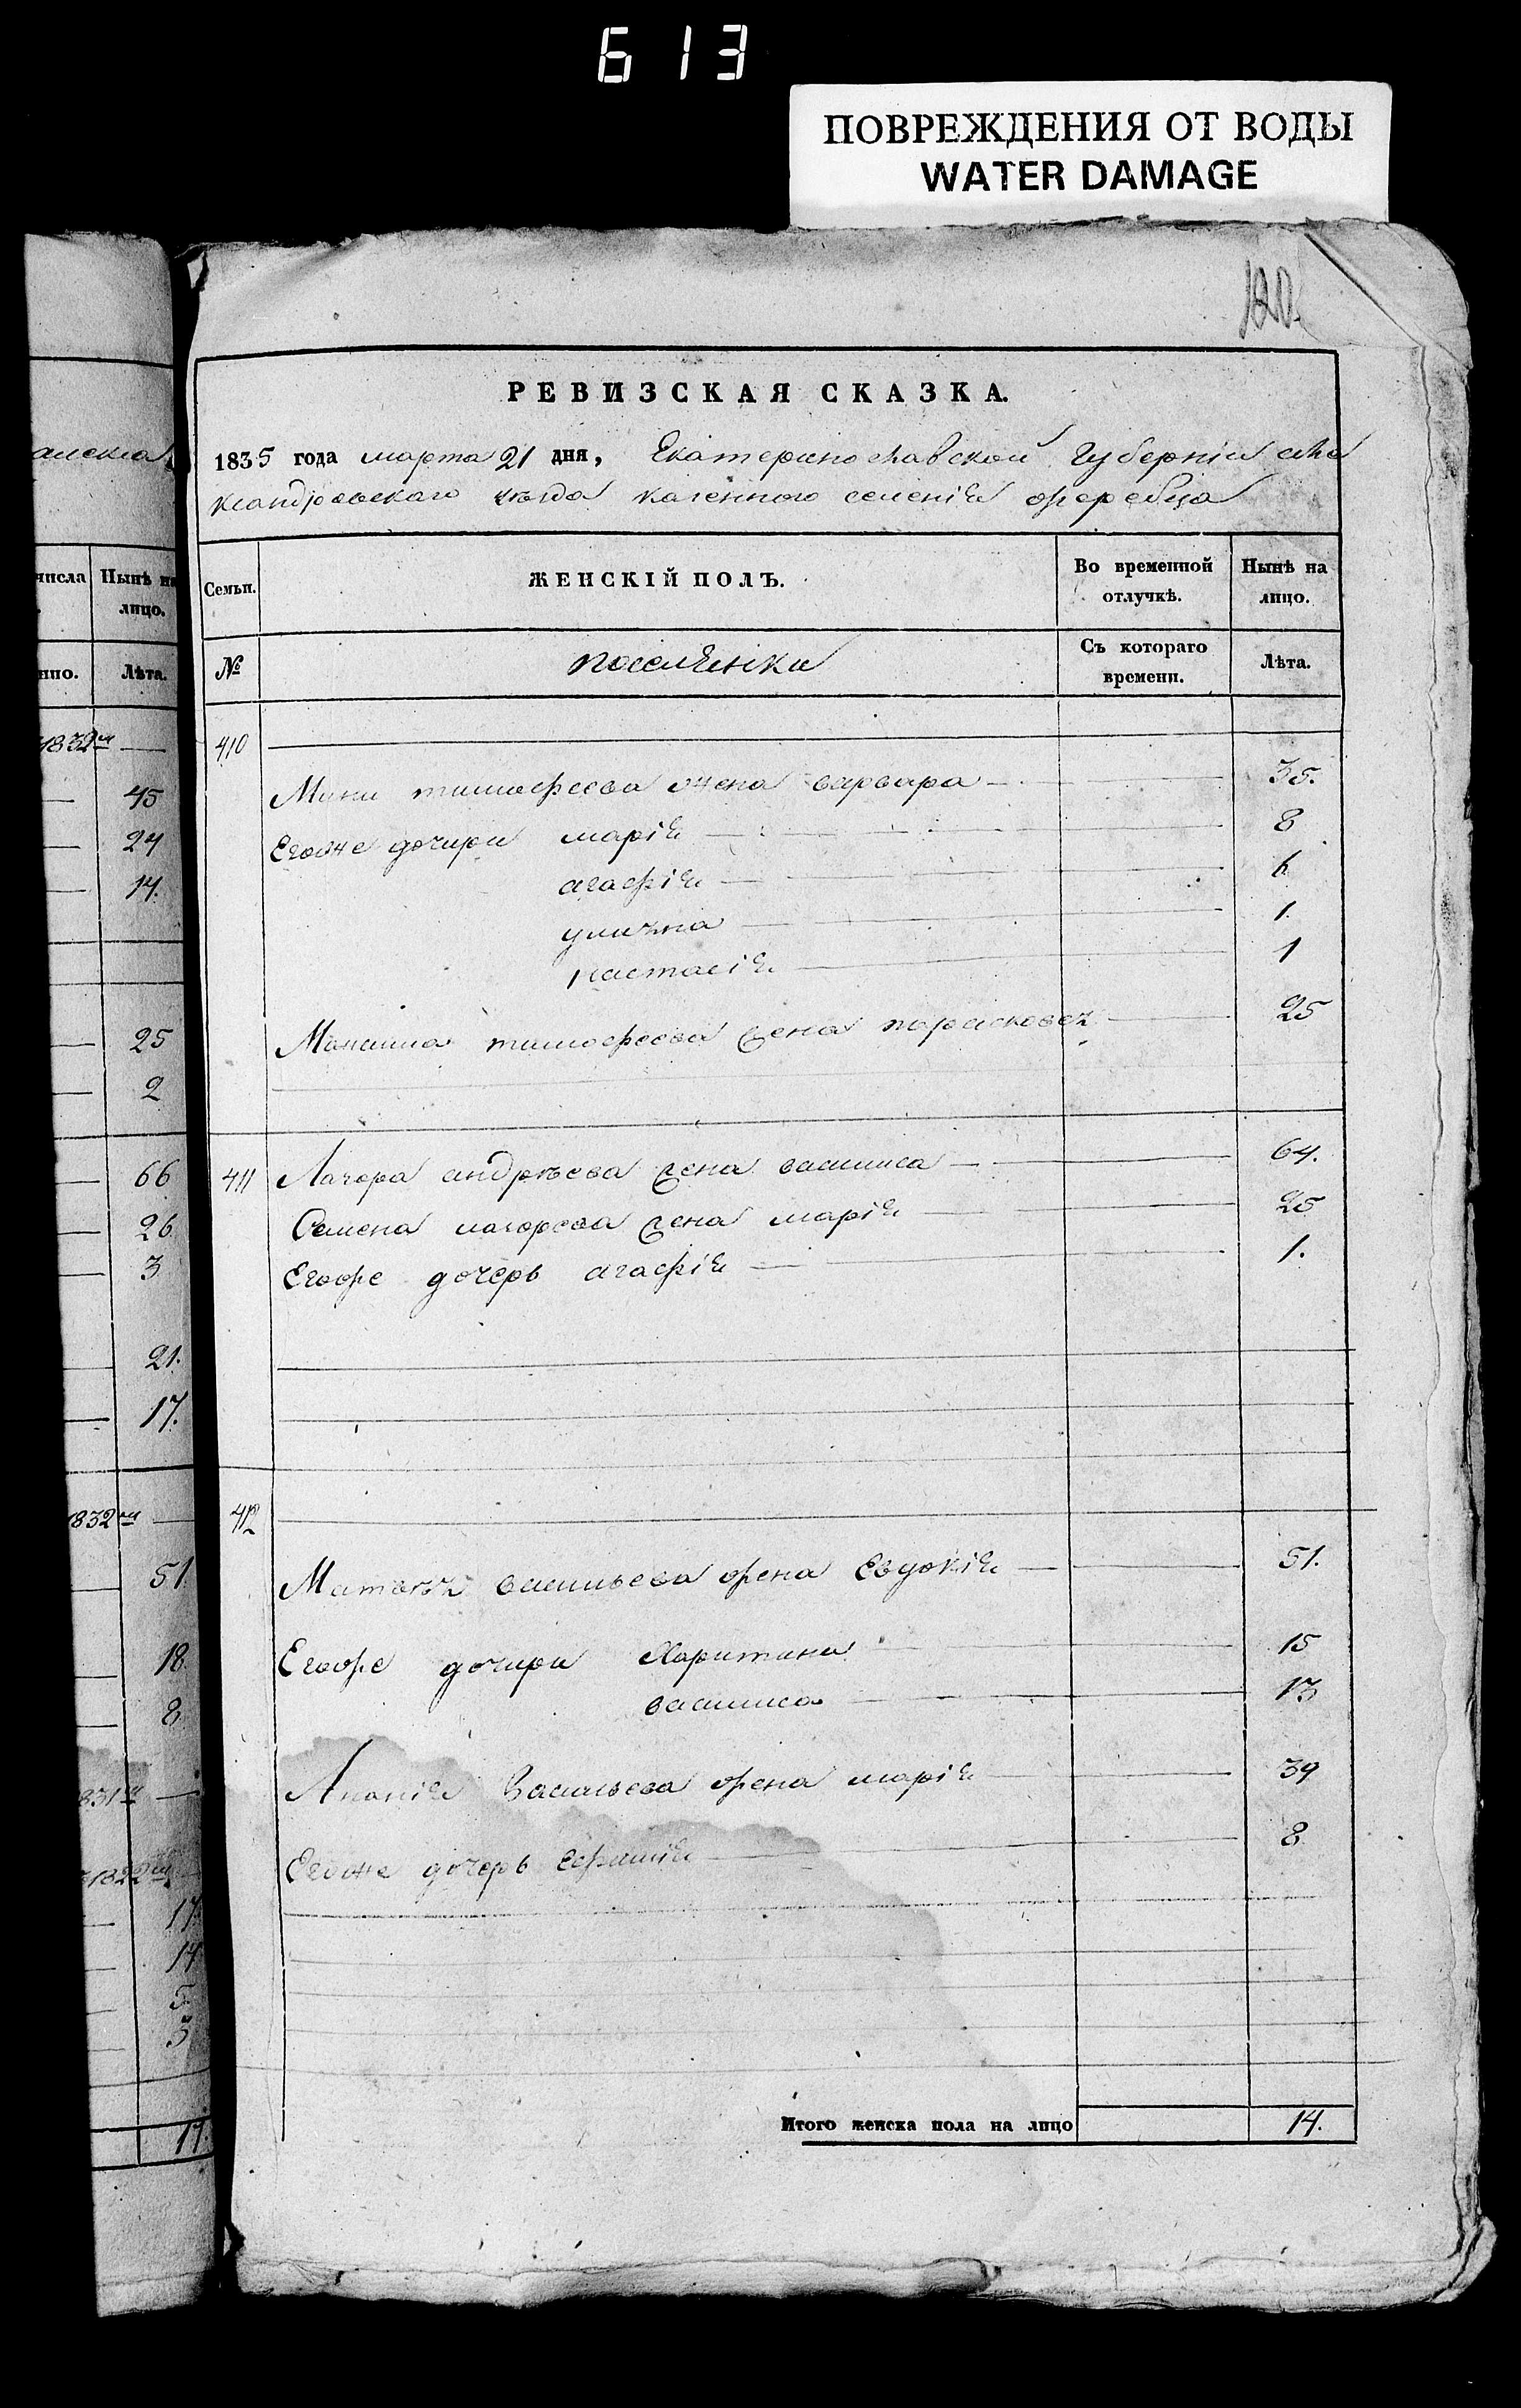 613
ПОВРЕЖДЕНИЯ ОТ ВОДЫ
WATER DAMAGE
120.
РЕВИЗСКАЯ СКАЗКА.
1835 года марта 21 дня, Екатеринославской Губерніи але
ксандровскаго уезда казенного селенія жеребца
Семьи.
ЖЕНСКІЙ ПОЛЪ.
Во временной отлучкѣ.
Нынѣ на лицо.
№
поселянки
Съ котораго времени.
Лѣта.
410
тимофеева жена варвара 35.
Егоже дочири марія 8
агафія 6
улияна 1.
настасія 1
тимофеева жена парасковея 25
411 андрѣева жена василиса 64.
Семена жена марія 25
Егоже дочерь агафія 1.
412
Матвея васильева жена Евдокія 51.
Егоже дочири Харитина 15
василиса 13
Ананія Васильева жена марія 39
Егоже дочерь 8
Итого женска пола на лицо 14.
числа
Нынѣ на лицо.
Лѣта.
1832
45
24
14.
25
2
66
26
3
21.
17.
1832
51
18.
8
1831
1822
17.
14
5
3
17.